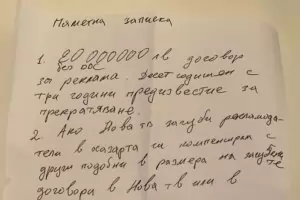 Паметна записка
1. 20 000000 лв договор
без ДДС
за реклама. Десет годишен с
три години предизвестие за
прекратяване.
2. Ако Нова тв загуби рекламода-
тели в хазарта ги компенсира с
други подобни в размера на загубените
договора в Нова тв или в